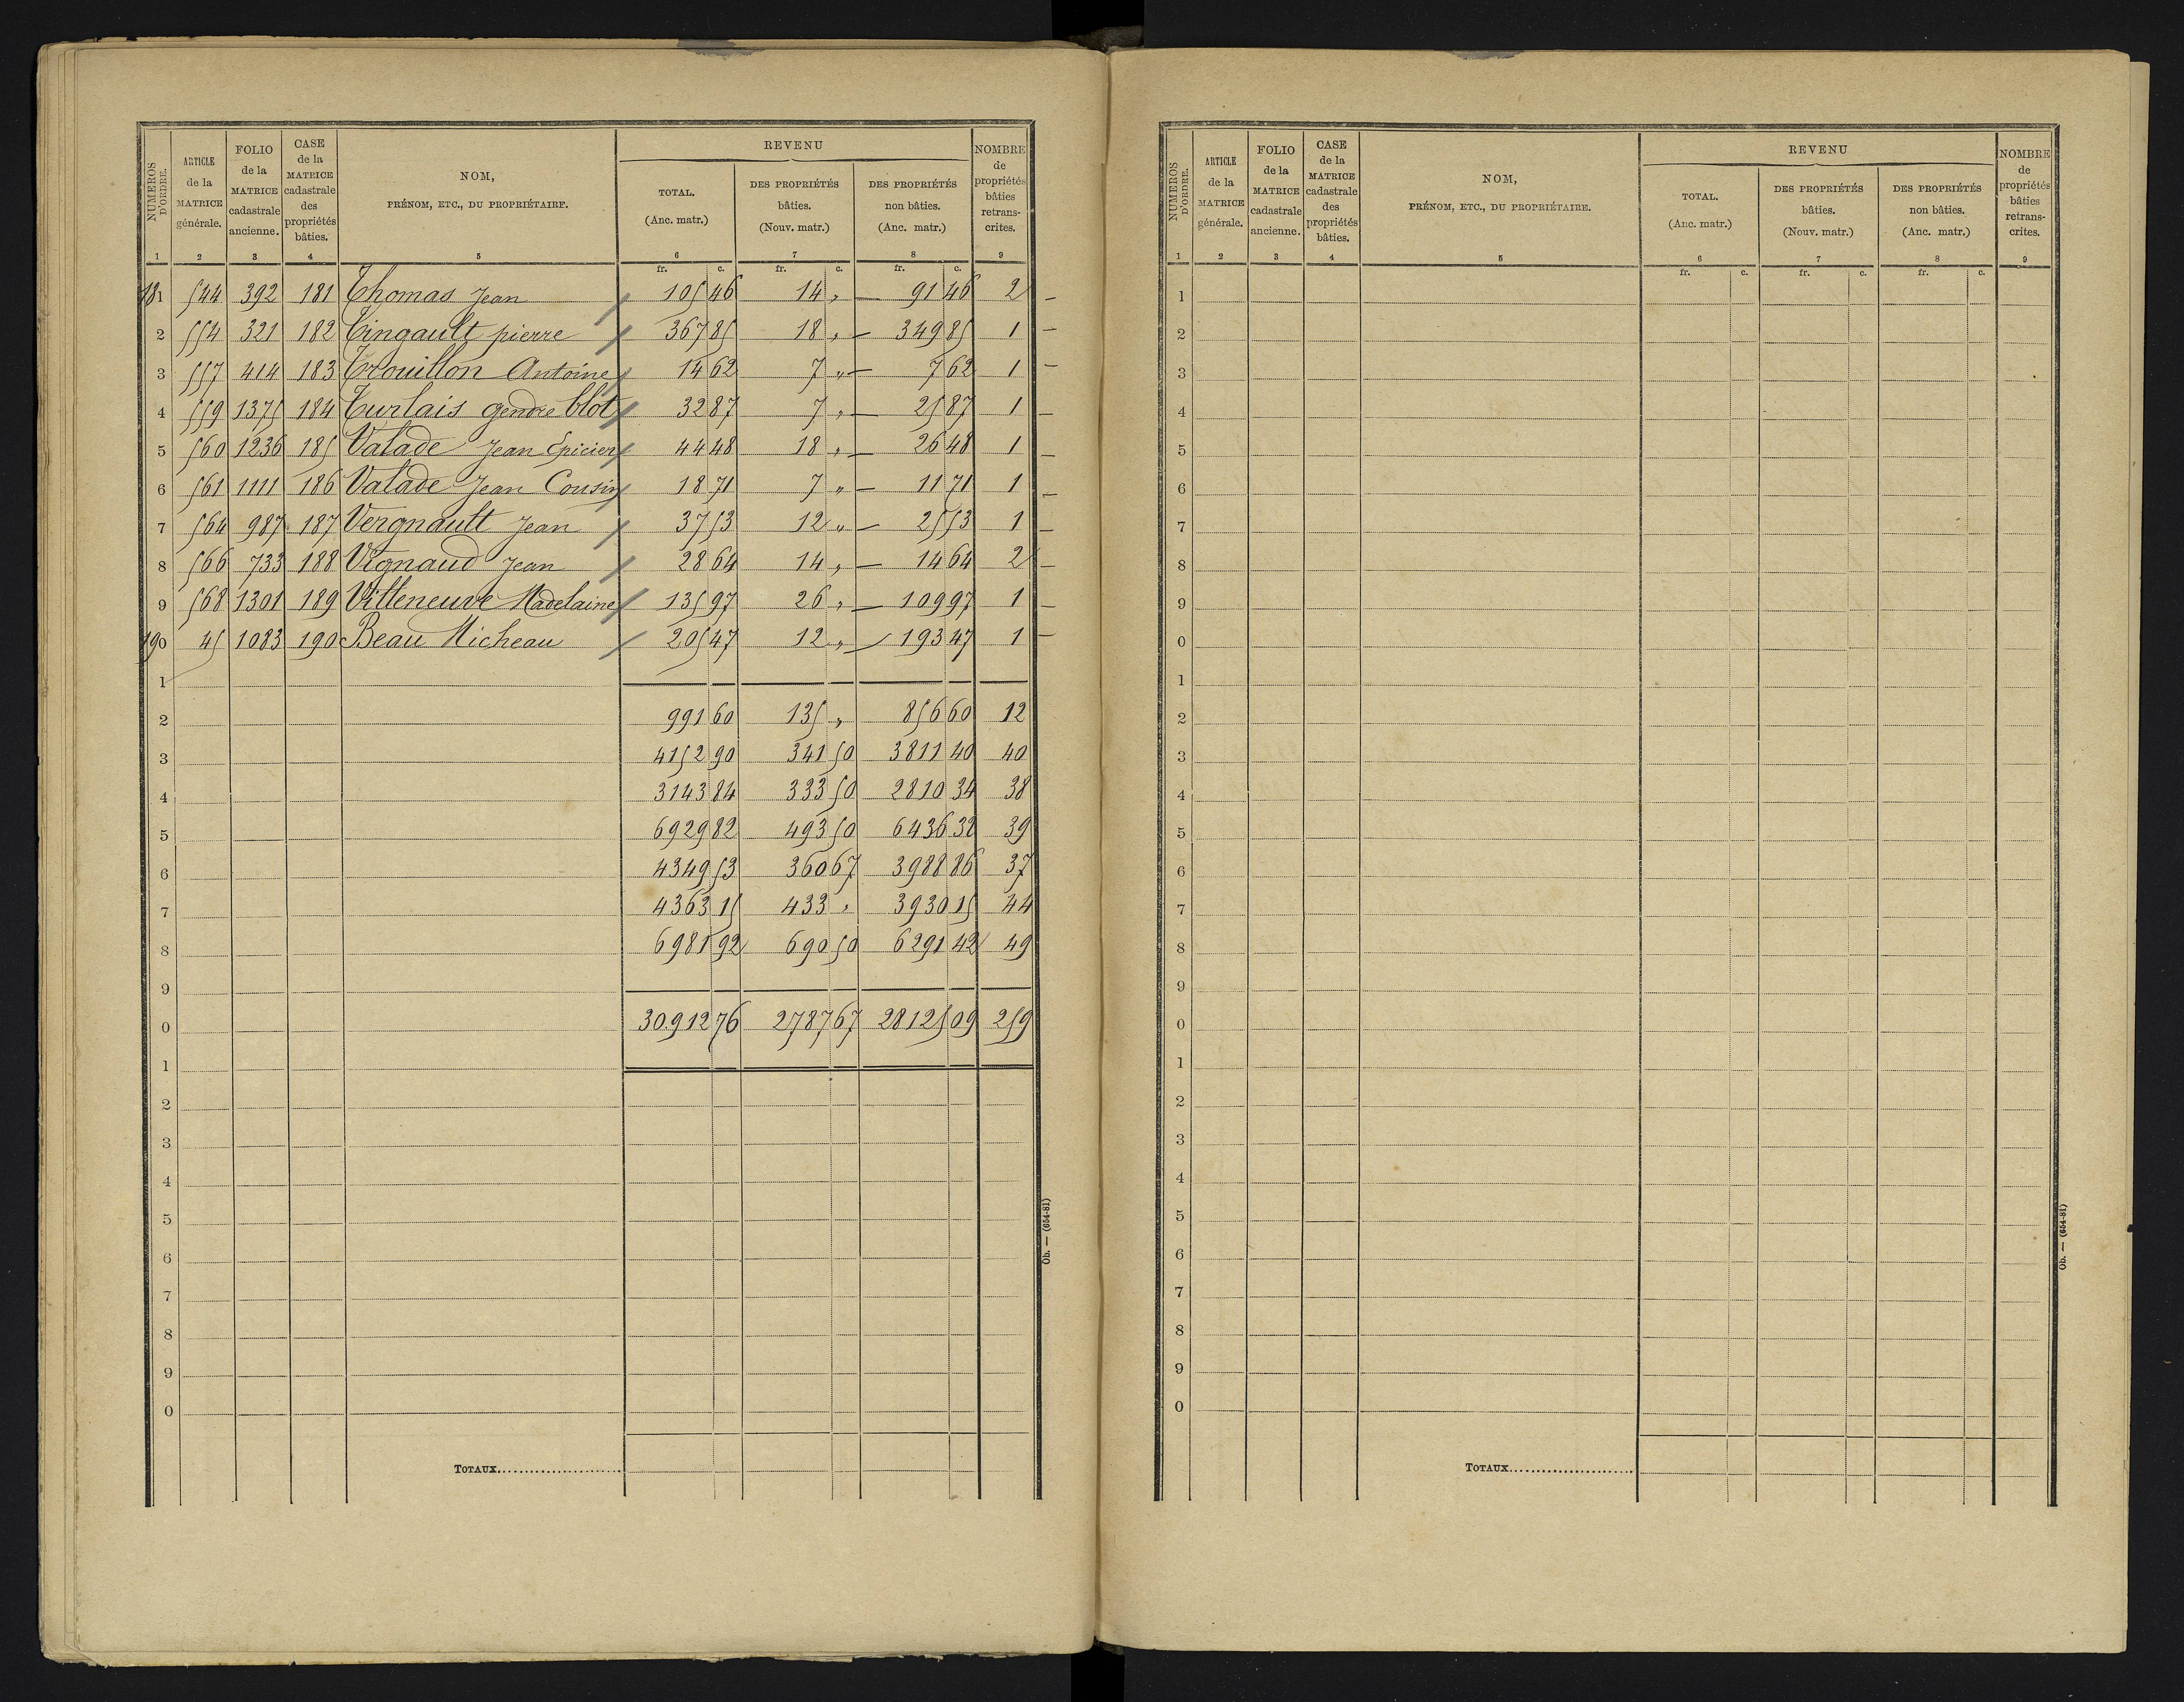 NUMÉROS D'ORDRE. | ARTICLE de la MATRICE générale. | FOLIO de la MATRICE cadastrale ancienne. | CASE de la MATRICE cadastrale des propriétés bâties. | NOM, PRÉNOM, ETC., DU PROPRIÉTAIRE. | REVENU TOTAL. (Anc. matr.) | DES PROPRIÉTÉS bâties. (Nouv. matr.) | DES PROPRIÉTÉS non bâties. (Anc. matr.) | NOMBRE de propriétés bâties retranscrites.
1 2 3 4 5 6 7 8 9
fr. c. fr. c. fr. c.
181 544 392 181 Thomas Jean 105 46 14 " — 91 46 2 —
2 554 321 182 Tingault pierre 367 85 18 " — 349 85 1 —
3 557 414 183 Trouillon Antoine 14 62 7 " — 7 62 1 —
4 559 1375 184 Turlais gendre blot 32 87 7 " — 25 87 1 —
5 560 1236 185 Valade Jean Epicier 44 48 18 " — 26 48 1 —
6 561 1111 186 Valade Jean Cousin 18 71 7 " — 11 71 1 —
7 564 987 187 Vergnault Jean 37 53 12 " — 25 53 1 —
8 566 733 188 Vignaud Jean 28 64 14 " — 14 64 2 —
9 568 1301 189 Villeneuve Madelaine 135 97 26 " — 109 97 1 —
190 45 1083 190 Beau Micheau 205 47 12 " — 193 47 1 —
1
2 991 60 135 " 856 60 12
3 4152 90 341 50 3811 40 40
4 3143 84 333 50 2810 34 38
5 6929 82 493 50 6436 32 39
6 4349 53 360 67 3988 86 37
7 4363 15 433 " 3930 15 44
8 6981 92 690 50 6291 42 49
9
0 30.912 76 2787 67 28125 09 259
1
2
3
4
5
6
7
8
9
0
TOTAUX
Ob. — (654-81)
NUMÉROS D'ORDRE. | ARTICLE de la MATRICE générale. | FOLIO de la MATRICE cadastrale ancienne. | CASE de la MATRICE cadastrale des propriétés bâties. | NOM, PRÉNOM, ETC., DU PROPRIÉTAIRE. | REVENU TOTAL. (Anc. matr.) | DES PROPRIÉTÉS bâties. (Nouv. matr.) | DES PROPRIÉTÉS non bâties. (Anc. matr.) | NOMBRE de propriétés bâties retranscrites.
1 2 3 4 5 6 7 8 9
fr. c. fr. c. fr. c.
1
2
3
4
5
6
7
8
9
0
1
2
3
4
5
6
7
8
9
0
1
2
3
4
5
6
7
8
9
0
TOTAUX
Ob. — (654-81)